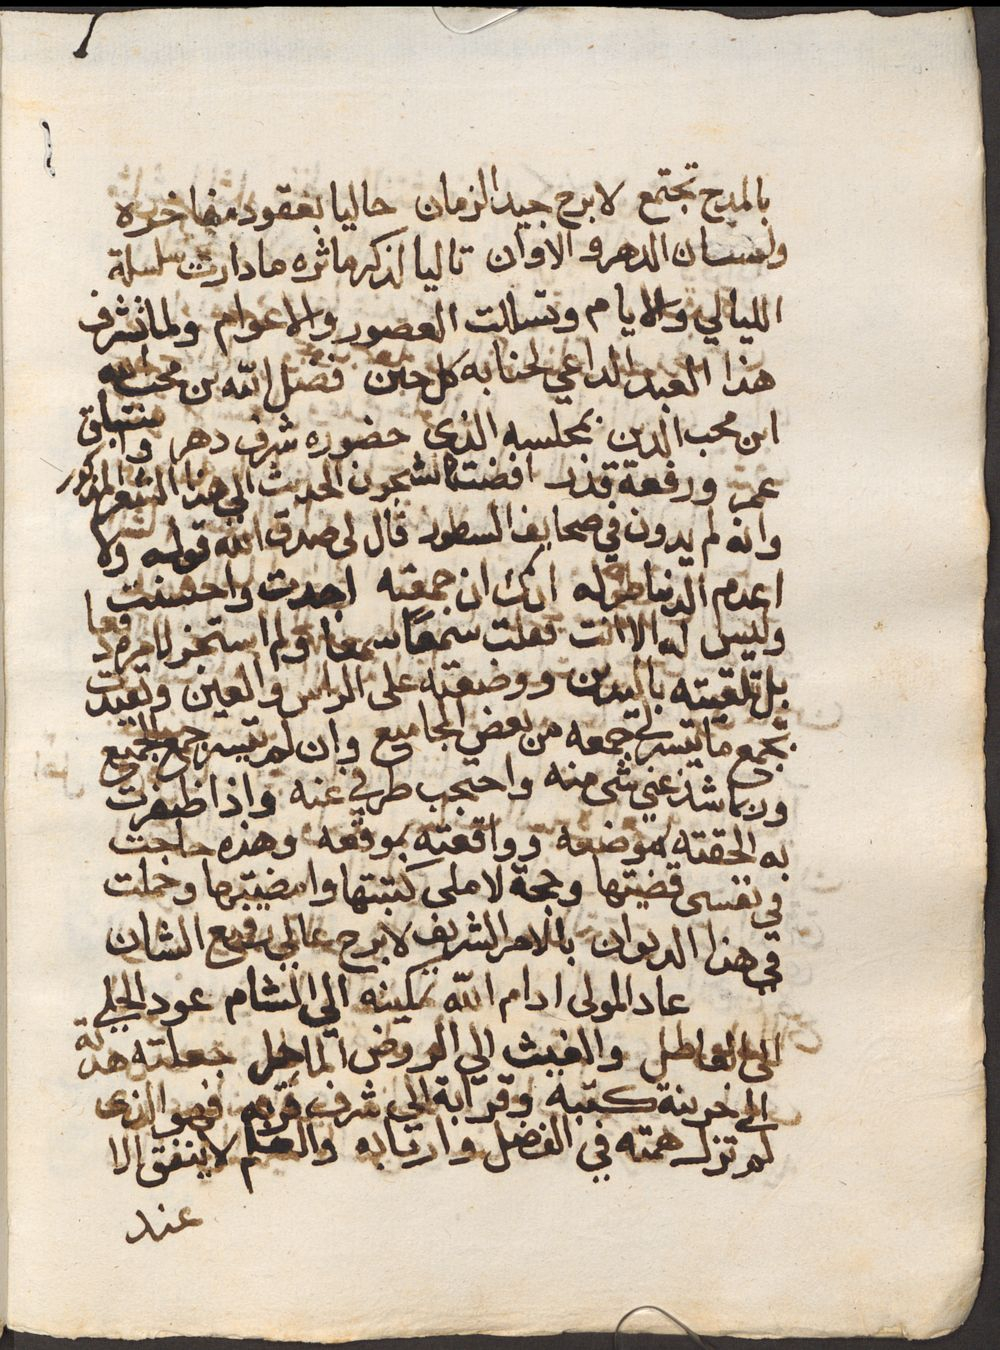 بالمدح تجتمع لا برح جيد الزمان حاليا بعقود مفاخره
ولسان الدهر والاوان تاليا لذكر ماثره ما دارت سلسلة
الليالي والايام وتسالت العصور والاعوام ولما تشرف
هذا العبد الداعي لجنابه كل حين فضل الله بن محب الله
ابن محب الدين بمجلسه الذى حضوره شرف دهر و
عمر ورفعة قدر افضت شجون الحديث الى هذا الشعر المذكور
وانه لم يدون في صحايف السطور قال لى صدق الله قوله ولا
اعدم الدنيا طوله انك ان جمعته اجدت واحسنت
وليس له الا انت فقلت سمعا سمعا ولم استجز لامره دفعا
بل تلقيته باليدين ووضعته على الراس والعين وتقيدت
بجمع ما تيسر لي جمعه من بعض المجاميع وان لم تيسر جمع الجميع
وربما شذ عني شى منه واحتجب طرفي عنه واذا ظفرت
به الحقته موضعه وواقعته بموقعه وهذه حاجت
في نفسى قضيتها وحجة لاملى كتبتها وامضيتها وحملت
في هذا الديوان بالامر الشريف لا برح عالي رفيع الشان
عاد المولى ادام الله تمكينه الي الشام عود الحلي
الى العاطل والغيث الي الروض الماحل جعلته هدية
الى خزينة كتبه وقرابة الى شرف قربه فهو الذى
لم تزل همته في الفضل وارتابه والعلم لا ينفق الا
عند